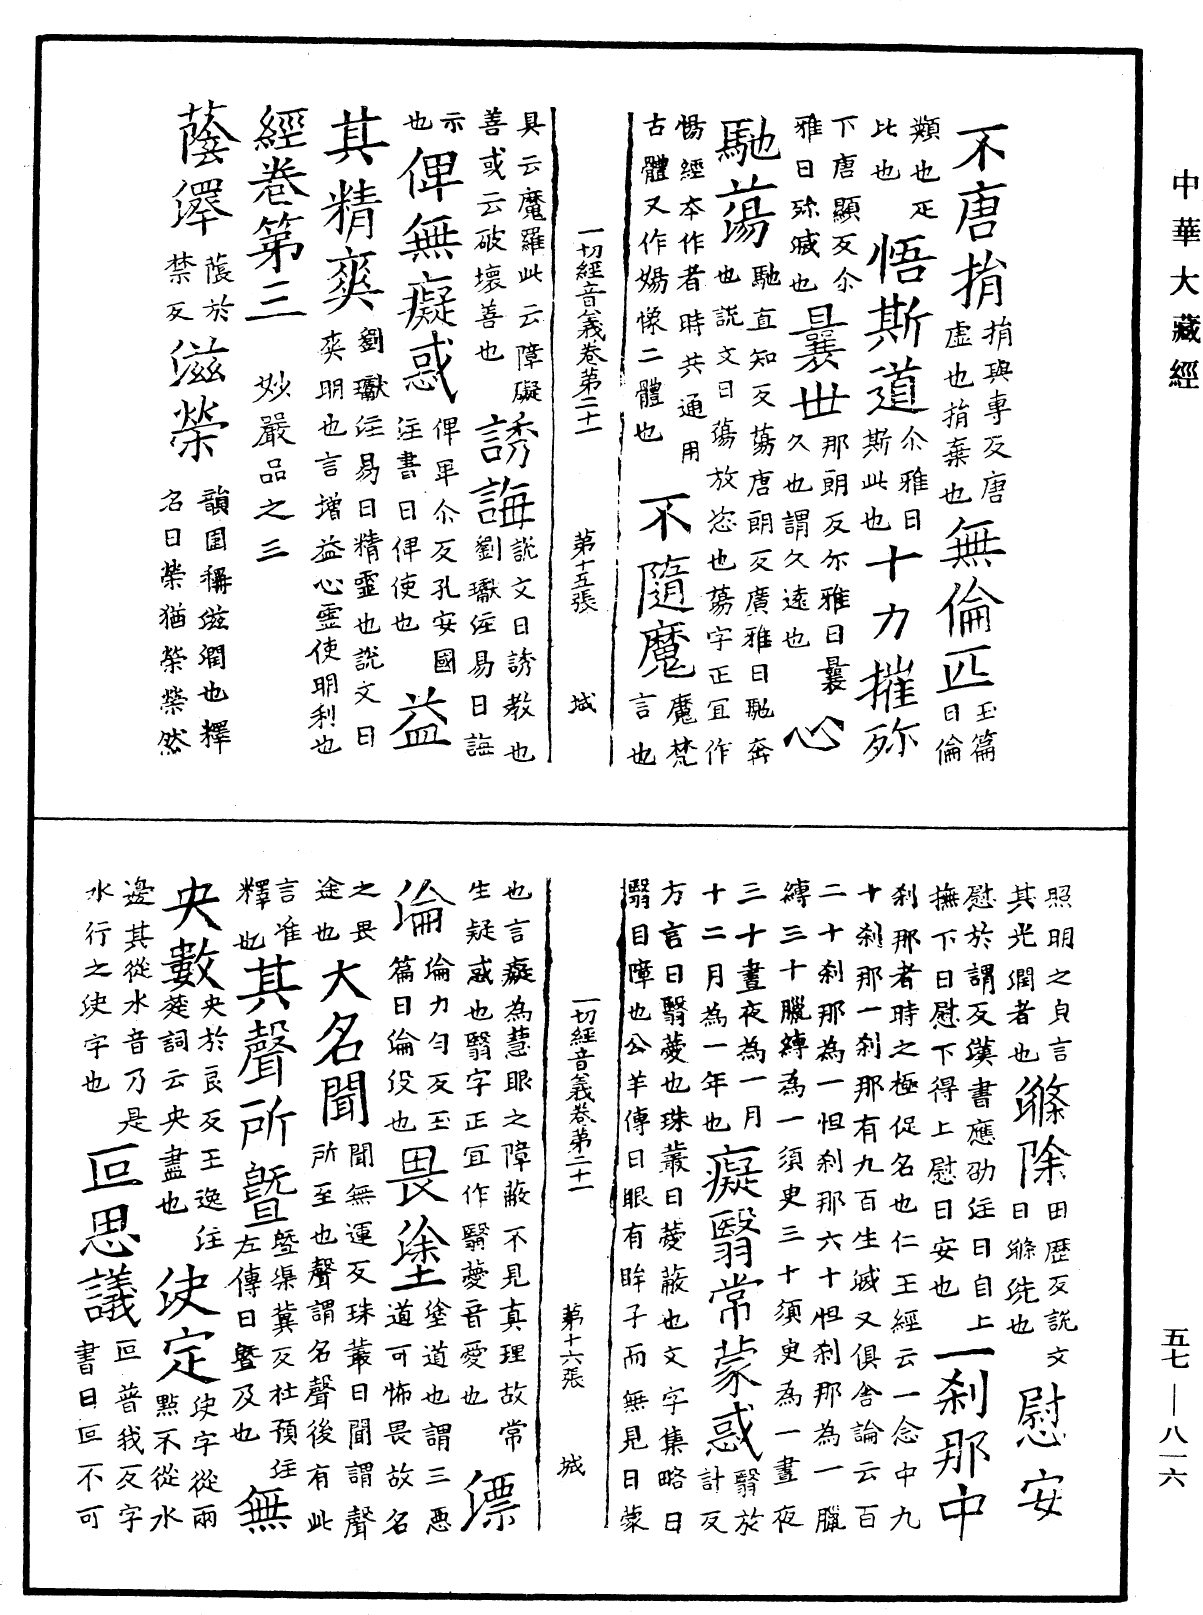 中華大藏經
不唐捐捐與專反唐虛也捐棄也無倫匹玉篇曰倫
類也疋比也悟斯道尒雅曰斯此也十力摧殄
下唐顯反尒雅曰殄滅也曩世那朗反尔雅曰曩久也謂久遠也心
馳蕩馳直知反蕩唐朗反廣雅曰馳奔也說文曰愓放恣也蕩字正宜作
愓經本作者時共通用古體又作婸像二體也不隨魔魔梵言也
一切經音義卷第二十一 第十五張 城
具云魔羅此云障礙善或云破壞善也誘誨說文曰誘教也劉瓛注易曰誨
示也俾無癡惑俾卑尒反孔安國注書曰俾使也益
其精爽劉瓛注易曰精靈也說文曰爽明也言增益心靈使明利也
經卷第三 妙嚴品之三
蔭澤蔭於禁反滋榮韻圃稱滋潤也釋名曰榮猶榮榮然
照明之皃言其光潤者也滌除田歷反說文曰滌洗也慰安
慰於謂反漢書應劭注曰自上撫下曰慰下得上慰曰安也一剎那中
剎那者時之極促名也仁王經云一念中九十剎那一剎那有九百生滅又俱舍論云百
二十剎那為一怛剎那六十怛剎那為一臘縛三十臘縛為一須臾三十須臾為一晝夜
三十晝夜為一月十二月為一年也癡翳常蒙惑翳於計反
方言曰翳薆也珠叢曰薆蔽也文字集略曰翳目障也公羊傳曰眼有眸子而無見曰蒙
一切經音義卷第二十一 第十六張 城
也言癡為慧眼之障蔽不見真理故常生疑惑也翳字正宜作瞖薆音愛也漂
淪淪力勻反玉篇曰淪没也畏塗塗道也謂三惡道可怖畏故名
之畏途也大名聞聞無運反珠叢曰聞謂聲所至也聲謂名聲後有此
言准釋也其聲所曁曁渠冀反杜預注左傳曰曁及也無
央數央於良反王逸注楚詞云央盡也決定決字從兩點不從水
邊其從水音乃是水行之決字也叵思議叵普我反字書曰叵不可
五七—八一六